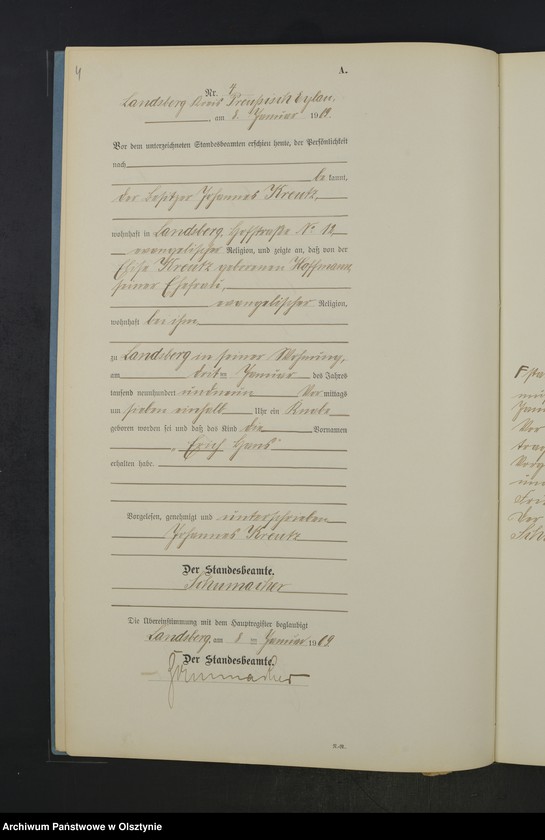 4
A.
Nr. 4
Landsberg Kreis Preußisch Eylau,
, am 8. Januar 1909.
Vor dem unterzeichneten Standesbeamten erschien heute, der Persönlichkeit
nach
be kannt,
der Besitzer Johannes Kreutz,
wohnhaft in Landsberg, Hofstraße No 12
evangelischer Religion, und zeigte an, daß von der
Kreutz geborenen Hoffmann,
seiner Ehefrau,
evangelischer Religion,
wohnhaft bei ihm
zu Landsberg in seiner Wohnung,
am dritten Januar des Jahres
tausend neunhundert und neun Vor mittags
um sieben einhalb Uhr ein Knabe
geboren worden sei und daß das Kind die Vornamen
"Erich Hans"
erhalten habe.
Vorgelesen, genehmigt und unterschrieben
Johannes Kreutz
Der Standesbeamte.
Schumacher
Die Übereinstimmung mit dem Hauptregister beglaubigt
Landsberg, am 8 ten Januar 1909.
Der Standesbeamte.
Schumacher
F
Vor
der
Archiwum Państwowe w Olsztynie